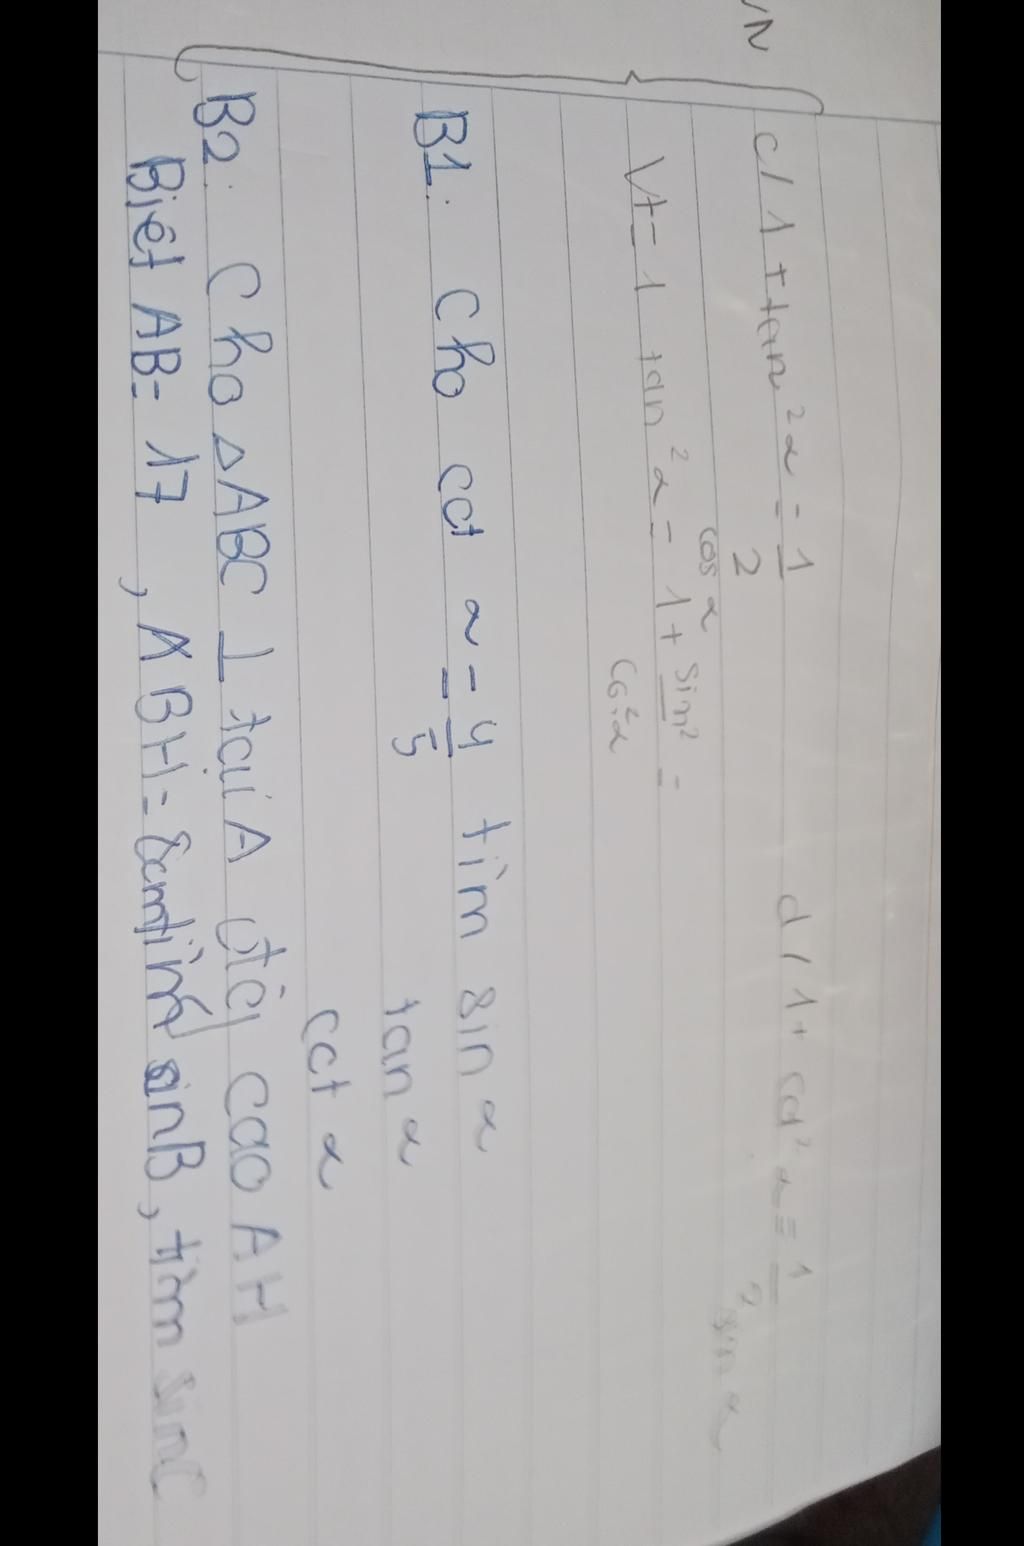 VN
c/ 1 + tan²α = 1    d/ 1 + cot²α = 1
2 cos α    ² sin α
Vt = 1 tan²α = 1 + sin² =
cos²α
B1. Cho cot α = 4 tìm sin α
5    tan α
cot α
B2. Cho Δ ABC ⊥ tại A đtg cao AH
Biết AB = 17, BH = 8cm tìm sinB, tìm sinC